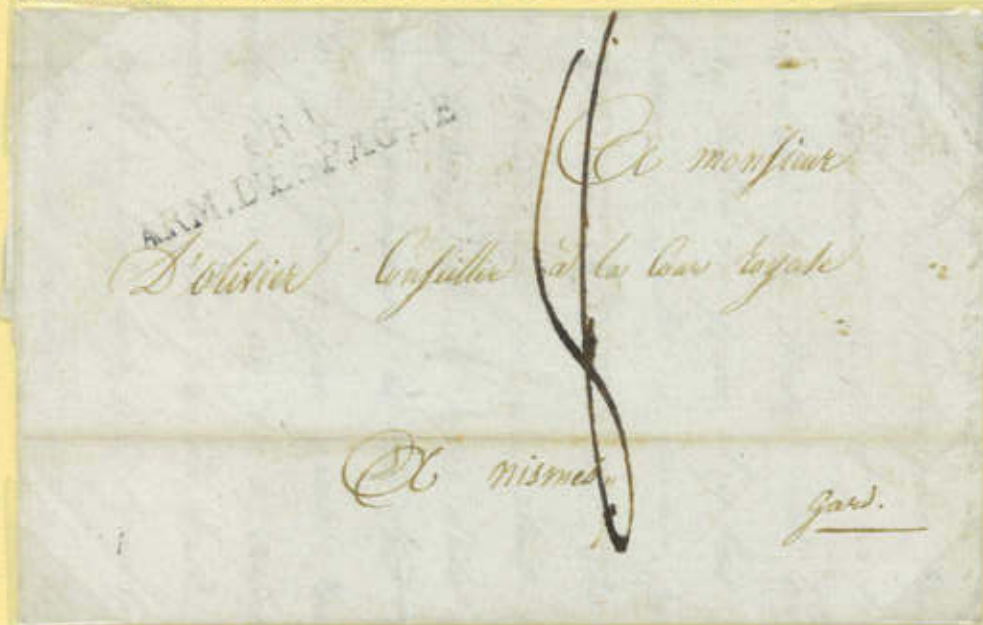 ARM. D'ESPAGNE
A monsieur
D'olivier Conseiller à la Cour royale
A nismes
Gard.